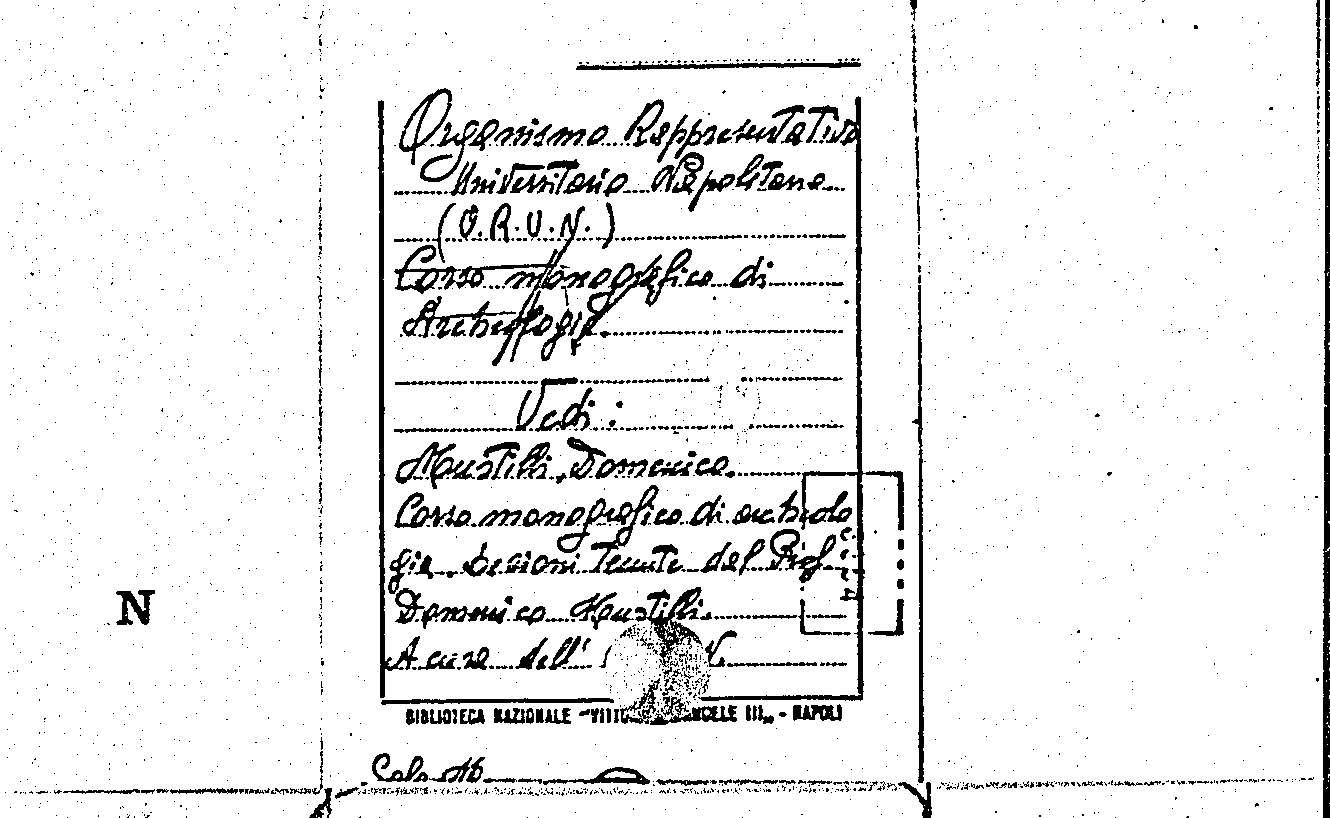 Organismo Rappresentativo
Universitario Napoletano
(O.R.U.N.)
Corso monografico di
Archeologia.
Vedi:
Mustilli, Domenico.
Corso monografico di archeolo
gia. Lezioni tenute dal Prof.
N
Domenico Mustilli.
A cura dell' N.
BIBLIOTECA NAZIONALE - NAPOLI